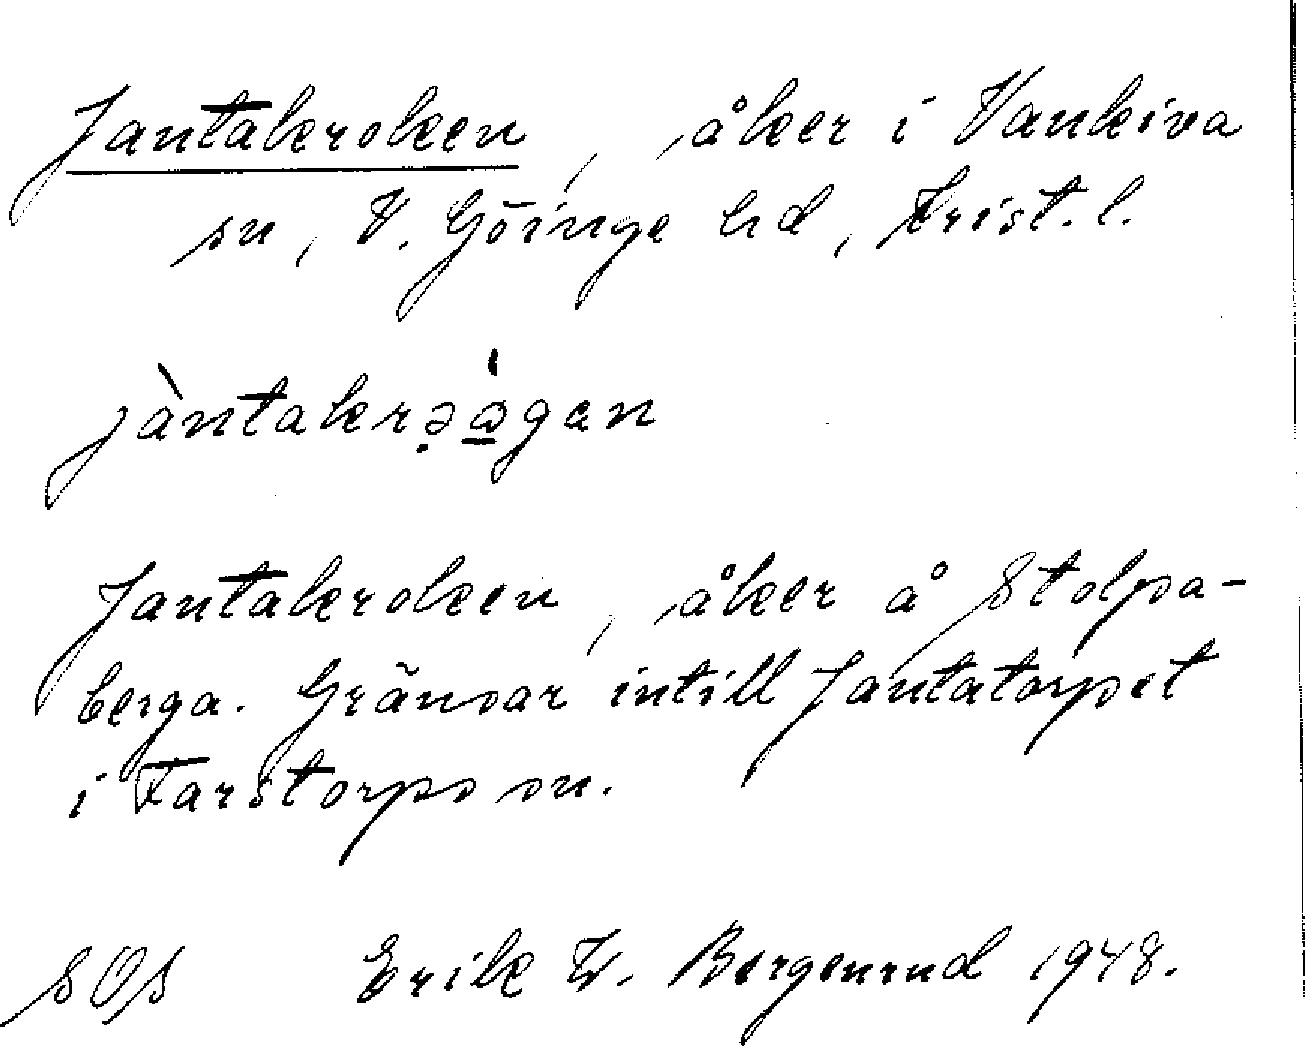 Jantakroken, åker i Vankiva
sn, V. Göinge hd, Krist. l.
jàntakrə̣o̱̍gen
Jantakroken, åker å Stolpa-
berga. Gränsar intill Jantatorpet
i Farstorps sn.
SOS Erik W. Bergenrud 1948.